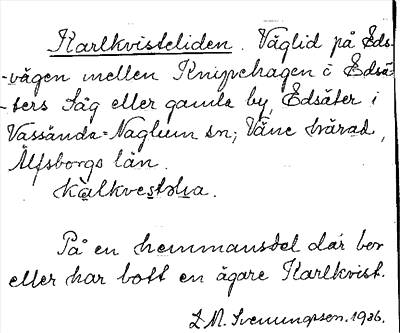 Karlkvisteliden. Väglid på Eds-
-vägen mellen Knipehagen i Edsä-
-ters Såg eller gamla by, Edsäter i
Vassända=Naglum sn; Väne härad,
Älfsborgs län.
På en hemmansdel där bor
eller har bott en ägare Karlkvist.
Svenungsson. 1936.